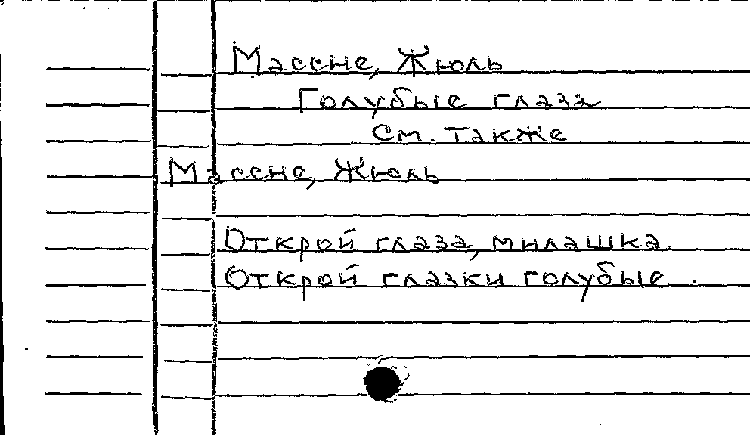 Массне, Жюль
Голубые глаза
См. также
Массне, Жюль
Открой глаза, милашка.
Открой глазки голубые.